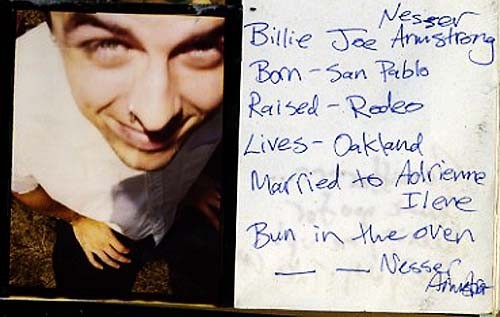 Nesser
Billie Joe Armstrong
Born - San Pablo
Raised - Rodeo
Lives - Oakland
Married to Adrienne
Ilene
Bun in the oven
— — Nesser